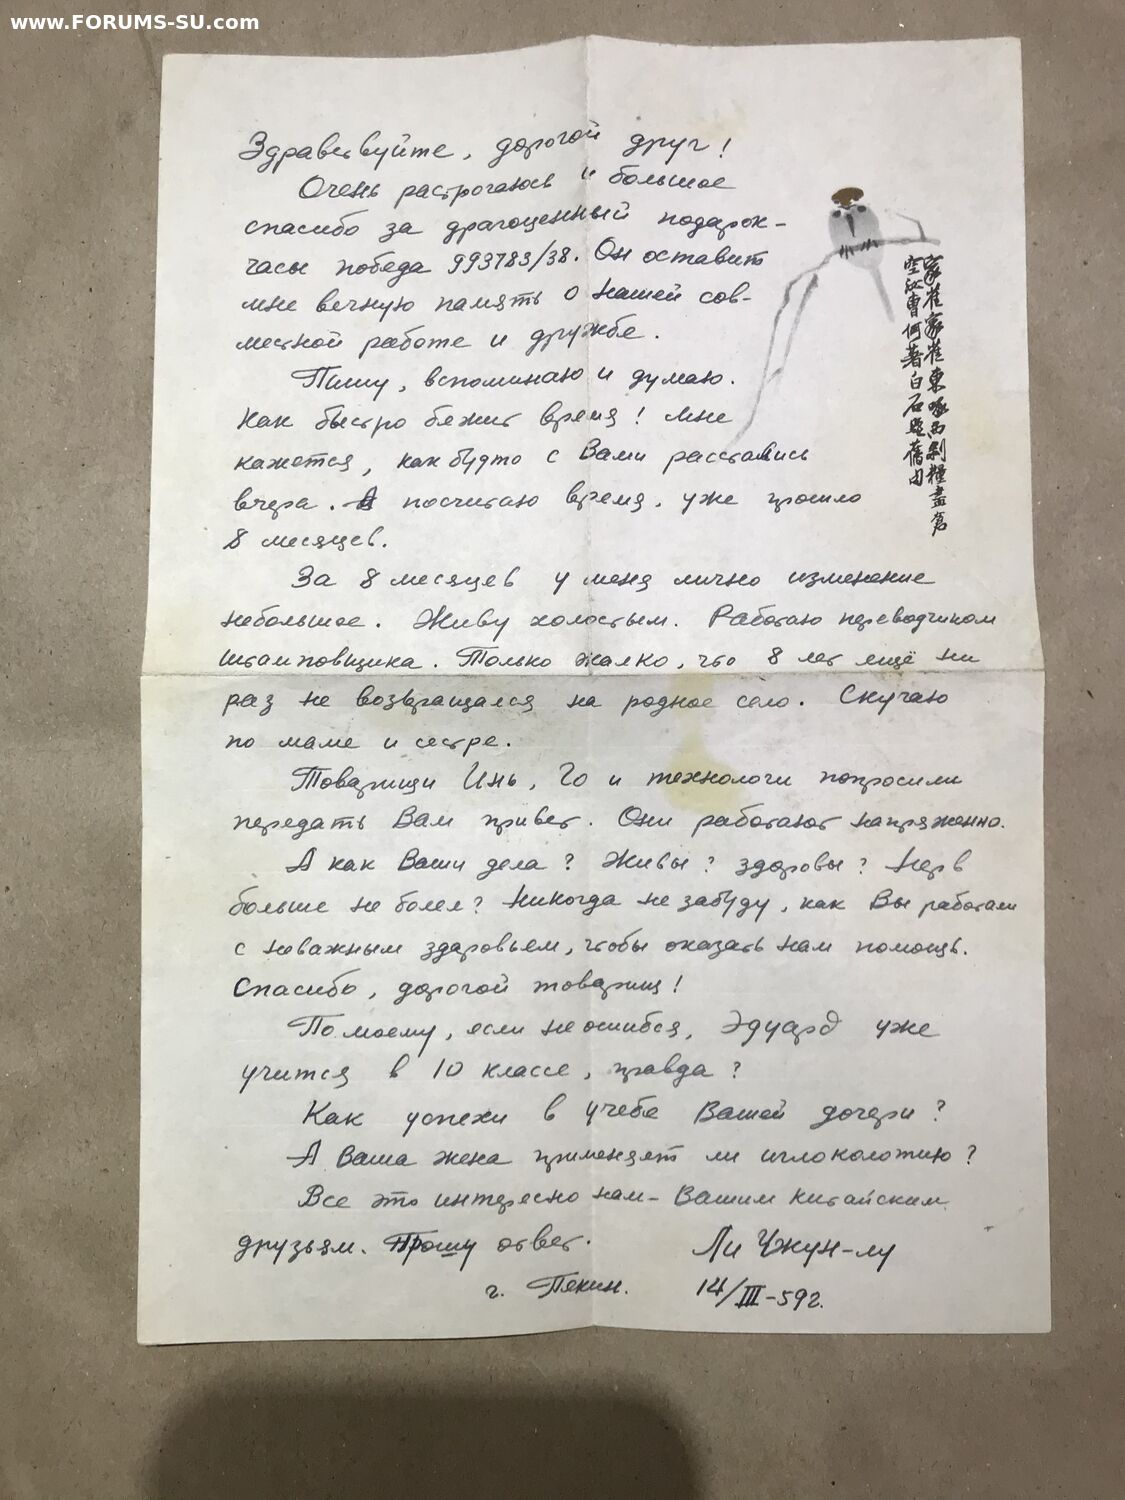 www.FORUMS-SU.com
Здравствуйте, дорогой друг!
Очень растрогаюсь и большое
спасибо за драгоценный подарок-
часы победа 993783/38. Он оставит
мне вечную память о нашей сов-
местной работе и дружбе.
Пишу, вспоминаю и думаю.
Как быстро бежит время! Мне
кажется, как будто с Вами расстались
вчера. А посчитаю время, уже прошло
8 месяцев.
За 8 месяцев у меня лично изменение
небольшое. Живу холостым. Работаю переводчиком
штамповщика. Только жалко, что 8 лет ещё ни
раз не возвращался на родное село. Скучаю
по маме и сестре.
Товарищи Инь, Го и технологи попросили
передать Вам привет. Они работают напряженно.
А как Ваши дела? Живы? здоровы? Нерв
больше не болел? Никогда не забуду, как Вы работали
с неважным здоровьем, чтобы оказать нам помощь.
Спасибо, дорогой товарищ!
По моему, если не ошибся, Эдуард уже
учится в 10 классе, правда?
Как успехи в учебе Вашей дочери?
А Ваша жена применяет ли иглоколотию?
Все это интересно нам- Вашим китайским
друзьям. Прошу ответ.
Ли Чжун-лу
г. Пекин.
14/III-59г.
家雀家雀東啄西剝糧盡倉
空汝曹何著白石題舊句